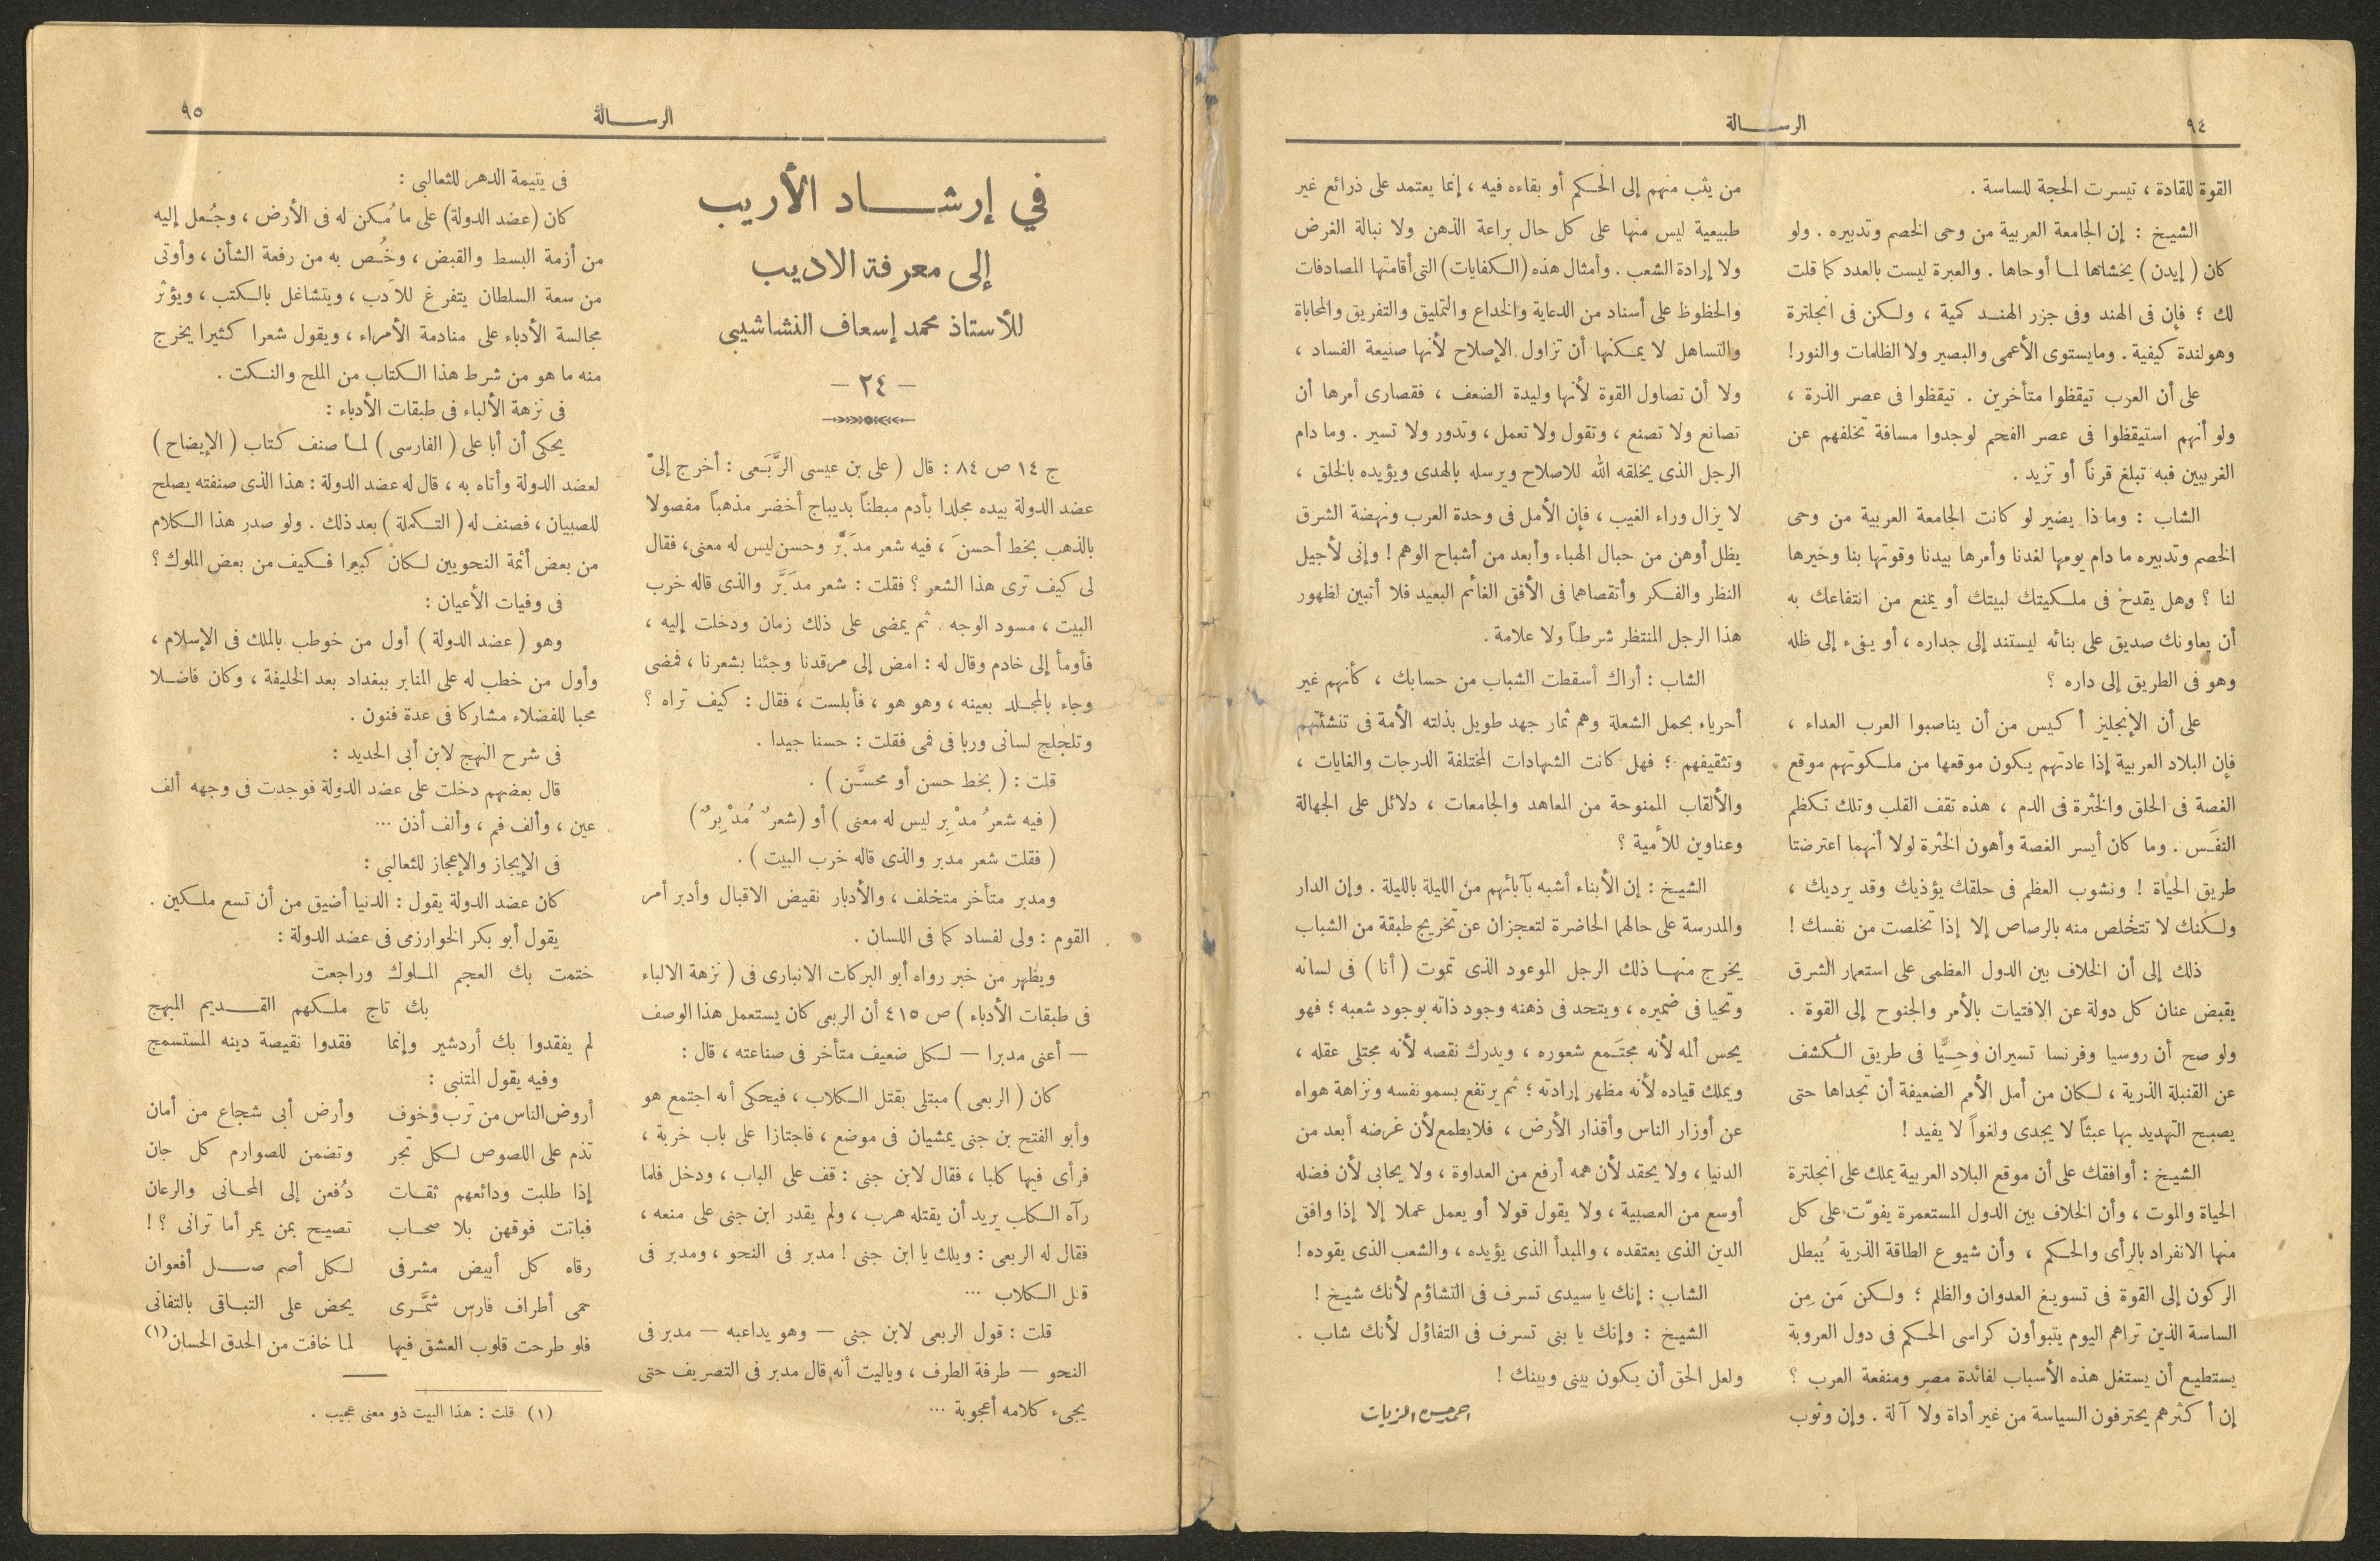 ٩٤
الرسالة
القوة للقادة ، تيسرت الحجة للساسة .
الشيخ : إن الجامعة العربية من وحى الخصم وتدبيره . ولو
كان ( إيدن ) يخشاها لما أوحاها . والعبرة ليست بالعدد كما قلت
لك ؛ فإن فى الهند وفى جزر الهند كمية ، ولكن فى انجلترة
وهولندة كيفية . وما يستوى الأعمى والبصير ولا الظلمات والنور !
على أن العرب تيقظوا متأخرين . تيقظوا فى عصر الذرة ،
ولو أنهم استيقظوا فى عصر الفحم لوجدوا مسافة تخلفهم عن
الغربيين فيه تبلغ قرناً أو تزيد .
الشاب : وماذا يضير لو كانت الجامعة العربية من وحى
الخصم وتدبيره ما دام يومها لغدنا وأمرها بيدنا وقوتها بنا وخيرها
لنا ؟ وهل يقدح فى ملكيتك لبيتك أو يمنع من انتفاعك به
أن يعاونك صديق على بنائه ليستند إلى جداره ، أو يفىء إلى ظله
وهو فى الطريق إلى داره ؟
على أن الإنجليز أكيس من أن يناصبوا العرب العداء ،
فإن البلاد العربية إذا عادتهم يكون موقعها من ملكوتهم موقع
الغصة فى الحلق والخثرة فى الدم ، هذه تقف القلب وتلك تكظم
النفَس . وما كان أيسر الغصة وأهون الخثرة لولا أنهما اعترضتا
طريق الحياة ! ونشوب العظم فى حلقك يؤذيك وقد يرديك ،
ولكنك لا تتخلص منه بالرصاص إلا إذا تخلصت من نفسك !
ذلك إلى أن الخلاف بين الدول العظمى على استعمار الشرق
يقبض عنان كل دولة عن الافتيات بالأمر والجنوح إلى القوة .
ولو صح أن روسيا وفرنسا تسيران وَحِيًّا فى طريق الكشف
عن القنبلة الذرية ، لكان من أمل الأمم الضعيفة أن تجداها حتى
يصبح التهديد بها عبثاً لا يجدى ولغواً لا يفيد !
الشيخ : أوافقك على أن موقع البلاد العربية يملك على انجلترة
الحياة والموت ، وأن الخلاف بين الدول المستعمرة يفوّت على كل
منها الانفراد بالرأى والحكم ، وأن شيوع الطاقة الذرية يُبطل
الركون إلى القوة فى تسويغ العدوان والظلم ؛ ولكن مَن مِن
الساسة الذين تراهم اليوم يتبوأون كراسى الحكم فى دول العروبة
يستطيع أن يستغل هذه الأسباب لفائدة مصر ومنفعة العرب ؟
إن أكثرهم يحترفون السياسة من غير أداة ولا آلة . وإن وثوب
من يثب منهم إلى الحكم أو بقاءه فيه ، إنما يعتمد على ذرائع غير
طبيعية ليس منها على كل حال براعة الذهن ولا نبالة الغرض
ولا إرادة الشعب . وأمثال هذه (الكفايات) التى أقامتها المصادفات
والحظوظ على أسناد من الدعاية والخداع والتمليق والتفريق والمحاباة
والتساهل لا يمكنها أن تزاول الإصلاح لأنها صنيعة الفساد ،
ولا أن تصاول القوة لأنها وليدة الضعف ، فقصارى أمرها أن
تصانع ولا تصنع ، وتقول ولا تعمل ، وتدور ولا تسير . وما دام
الرجل الذى يخلقه الله للاصلاح ويرسله بالهدى ويؤيده بالخلق ،
لا يزال وراء الغيب ، فإن الأمل فى وحدة العرب ونهضة الشرق
يظل أوهن من حبال الهباء وأبعد من أشباح الوهم ! وإنى لأجيل
النظر والفكر وأتقصاهما فى الأفق الغائم البعيد فلا أتبين لظهور
هذا الرجل المنتظر شرطاً ولا علامة .
الشاب : أراك أسقطت الشباب من حسابك ، كأنهم غير
أحرياء بحمل الشعلة وهم ثمار جهد طويل بذلته الأمة فى تنشئتهم
وتثقيفهم ؛ فهل كانت الشهادات المختلفة الدرجات والغايات ،
والألقاب الممنوحة من المعاهد والجامعات ، دلائل على الجهالة
وعناوين للأمية ؟
الشيخ : إن الأبناء أشبه بآبائهم من الليلة بالليلة . وإن الدار
والمدرسة على حالهما الحاضرة لتعجزان عن تخريج طبقة من الشباب
يخرج منها ذلك الرجل الموعود الذى تموت ( أنا ) فى لسانه
وتحيا فى ضميره ، ويتحد فى ذهنه وجود ذاته بوجود شعبه ؛ فهو
يحس ألمه لأنه مجتَمع شعوره ، ويدرك نقصه لأنه مجتلى عقله ،
ويملك قياده لأنه مظهر إرادته ؛ ثم يرتفع بسمو نفسه ونزاهة هواه
عن أوزار الناس وأقذار الأرض ، فلا يطمع لأن غرضه أبعد من
الدنيا ، ولا يحقد لأن همه أرفع من العداوة ، ولا يحابى لأن فضله
أوسع من العصبية ، ولا يقول قولا أو يعمل عملا إلا إذا وافق
الدين الذى يعتقده ، والمبدأ الذى يؤيده ، والشعب الذى يقوده !
الشاب : إنك يا سيدى تسرف فى التشاؤم لأنك شيخ !
الشيخ : وإنك يا بنى تسرف فى التفاؤل لأنك شاب .
ولعل الحق أن يكون بينى وبينك !
احمد حسن الزيات
الرسالة
٩٥
في إرشاد الأريب
إلى معرفة الاديب
للأستاذ محمد إسعاف النشاشيبي
— ٢٤ —
ج ١٤ ص ٨٤ : قال ( على بن عيسى الرَّبَعى : أخرج إلىّ
عضد الدولة بيده مجلدا بأدم مبطناً بديباج أخضر مذهباً مفصولا
بالذهب بخط أحسنَ ، فيه شعر مدَبَّر وحسن ليس له معنى، فقال
لى كيف ترى هذا الشعر ؟ فقلت : شعر مدَبَّر والذى قاله خرب
البيت ، مسود الوجه . ثم يمضى على ذلك زمان ودخلت إليه ،
فأومأ إلى خادم وقال له : امض إلى مرقدنا وجئنا بشعرنا ، فمضى
وجاء بالمجلد بعينه ، وهو هو ، فأبلست ، فقال : كيف تراه ؟
وتلجلج لسانى وربا فى فمى فقلت : حسنا جيدا .
قلت : ( بخط حسن أو محسَّن ) .
( فيه شعرُ مدْبِر ليس له معنى ) أو (شعرٌ مُدْبِرٌ)
( فقلت شعر مدبر والذى قاله خرب البيت ) .
ومدبر متأخر متخلف ، والأدبار نقيض الاقبال وأدبر أمر
القوم : ولى لفساد كما فى اللسان .
ويظهر من خبر رواه أبو البركات الانبارى فى ( نزهة الالباء
فى طبقات الأدباء ) ص ٤١٥ أن الربعى كان يستعمل هذا الوصف
— أعنى مدبرا — لكل ضعيف متأخر فى صناعته ، قال :
كان ( الربعى ) مبتلى بقتل الكلاب ، فيحكى أنه اجتمع هو
وأبو الفتح بن جنى يمشيان فى موضع ، فاجتازا على باب خربة ،
فرأى فيها كلبا ، فقال لابن جنى : قف على الباب ، ودخل فلما
رآه الكلب يريد أن يقتله هرب ، ولم يقدر ابن جنى على منعه ،
فقال له الربعى : ويلك يا ابن جنى ! مدبر فى النحو ، ومدبر فى
قتل الكلاب ...
قلت : قول الربعى لابن جنى — وهو يداعبه — مدبر فى
النحو — طرفة الطرف ، وياليت أنه قال مدبر فى التصريف حتى
يجىء كلامه أعجوبة ...
فى يتيمة الدهر للثعالبى :
كان (عضد الدولة) على ما مُكن له فى الأرض ، وجُعل إليه
من أزمة البسط والقبض ، وخُص به من رفعة الشأن ، وأوتى
من سعة السلطان يتفرغ للأدب ، ويتشاغل بالكتب ، ويؤثر
مجالسة الأدباء على منادمة الأمراء ، ويقول شعرا كثيرا يخرج
منه ما هو من شرط هذا الكتاب من الملح والنكت .
فى نزهة الألباء فى طبقات الأدباء :
يحكى أن أبا على ( الفارسى ) لما صنف كتاب ( الإيضاح )
لعضد الدولة وأتاه به ، قال له عضد الدولة : هذا الذى صنفته يصلح
للصبيان ، فصنف له ( التكملة ) بعد ذلك . ولو صدر هذا الكلام
من بعض أئمة النحويين لكان كبيرا فكيف من بعض الملوك ؟
فى وفيات الأعيان :
وهو ( عضد الدولة ) أول من خوطب بالملك فى الإسلام ،
وأول من خطب له على المنابر ببغداد بعد الخليفة ، وكان فاضلا
محبا للفضلاء مشاركا فى عدة فنون .
فى شرح النهج لابن أبى الحديد :
قال بعضهم دخلت على عضد الدولة فوجدت فى وجهه ألف
عين ، وألف فم ، وألف أذن ...
فى الإيجاز والإعجاز للثعالبى :
كان عضد الدولة يقول : الدنيا أضيق من أن تسع ملكين .
يقول أبو بكر الخوارزمى فى عضد الدولة :
ختمت بك العجم الملوك وراجعت
بك تاج ملكهم القديم المبهج
لم يفقدوا بك أردشير وإنما فقدوا نقيصة دينه المستسمج
وفيه يقول المتنبى :
أروض الناس من ترب وخوف وأرض أبى شجاع من أمان
تذم على اللصوص لكل تجر وتضمن للصوارم كل جان
إذا طلبت ودائعهم ثقات دُفعن إلى المحانى والرعان
فباتت فوقهن بلا صحاب تصيح بمن يمر أما ترانى ؟ !
رقاه كل أبيض مشرفى لكل أصم صل أفعوان
حمى أطراف فارس شمَّرى يحض على التباقى بالتفانى
فلو طرحت قلوب العشق فيها لما خافت من الحدق الحسان(١)
(١) قلت : هذا البيت ذو معنى عجيب .